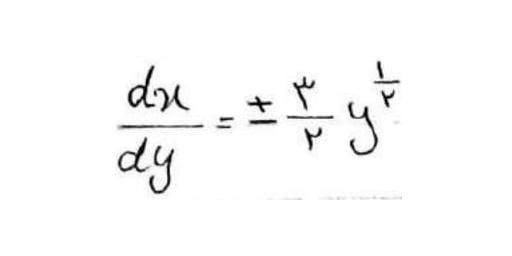 dx/dy = ± ۳/۲ y^(۱/۲)